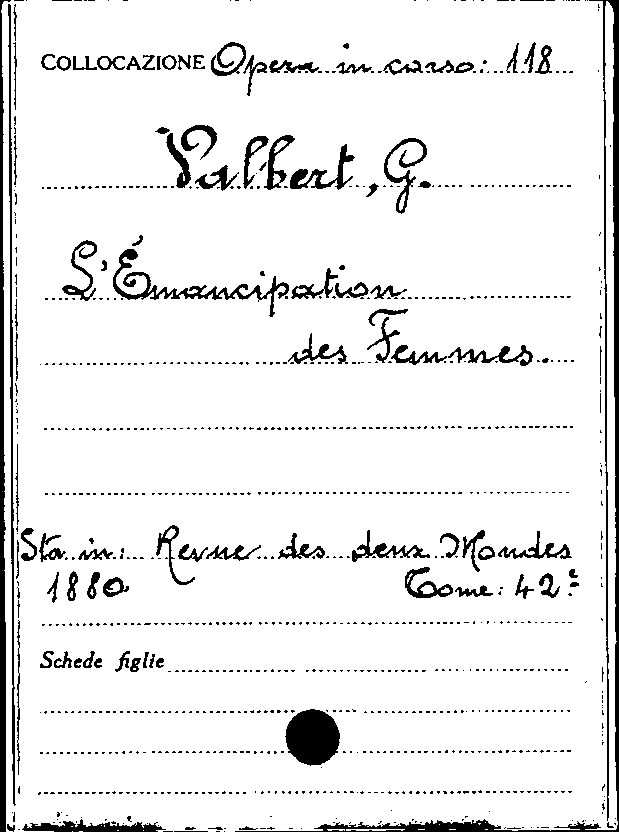 COLLOCAZIONE Opera in corso: 118
Valbert, G.
L'Émancipation
des Femmes.
Sta in: Revue des deux Mondes
1880 Tome: 42e
Schede figlie